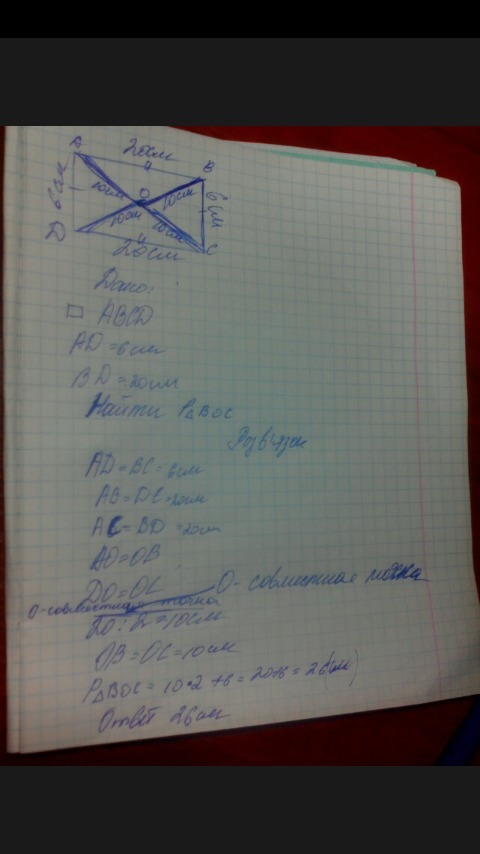 A 20см B
6см 10см O 10см 6см
10см 10см
D 20см C
Дано:
□ ABCD
AD = 6см
BD = 20см
Найти P△BOC
Розв'язок
AD = BC = 6см
AB = DC = 20см
AC = BD = 20см
AO = OB
DO = OC O - совместная точка
O - совместная точка
20 : 2 = 10см
OB = OC = 10см
P△BOC = 10•2+6 = 20+6 = 26(см)
Ответ 26см